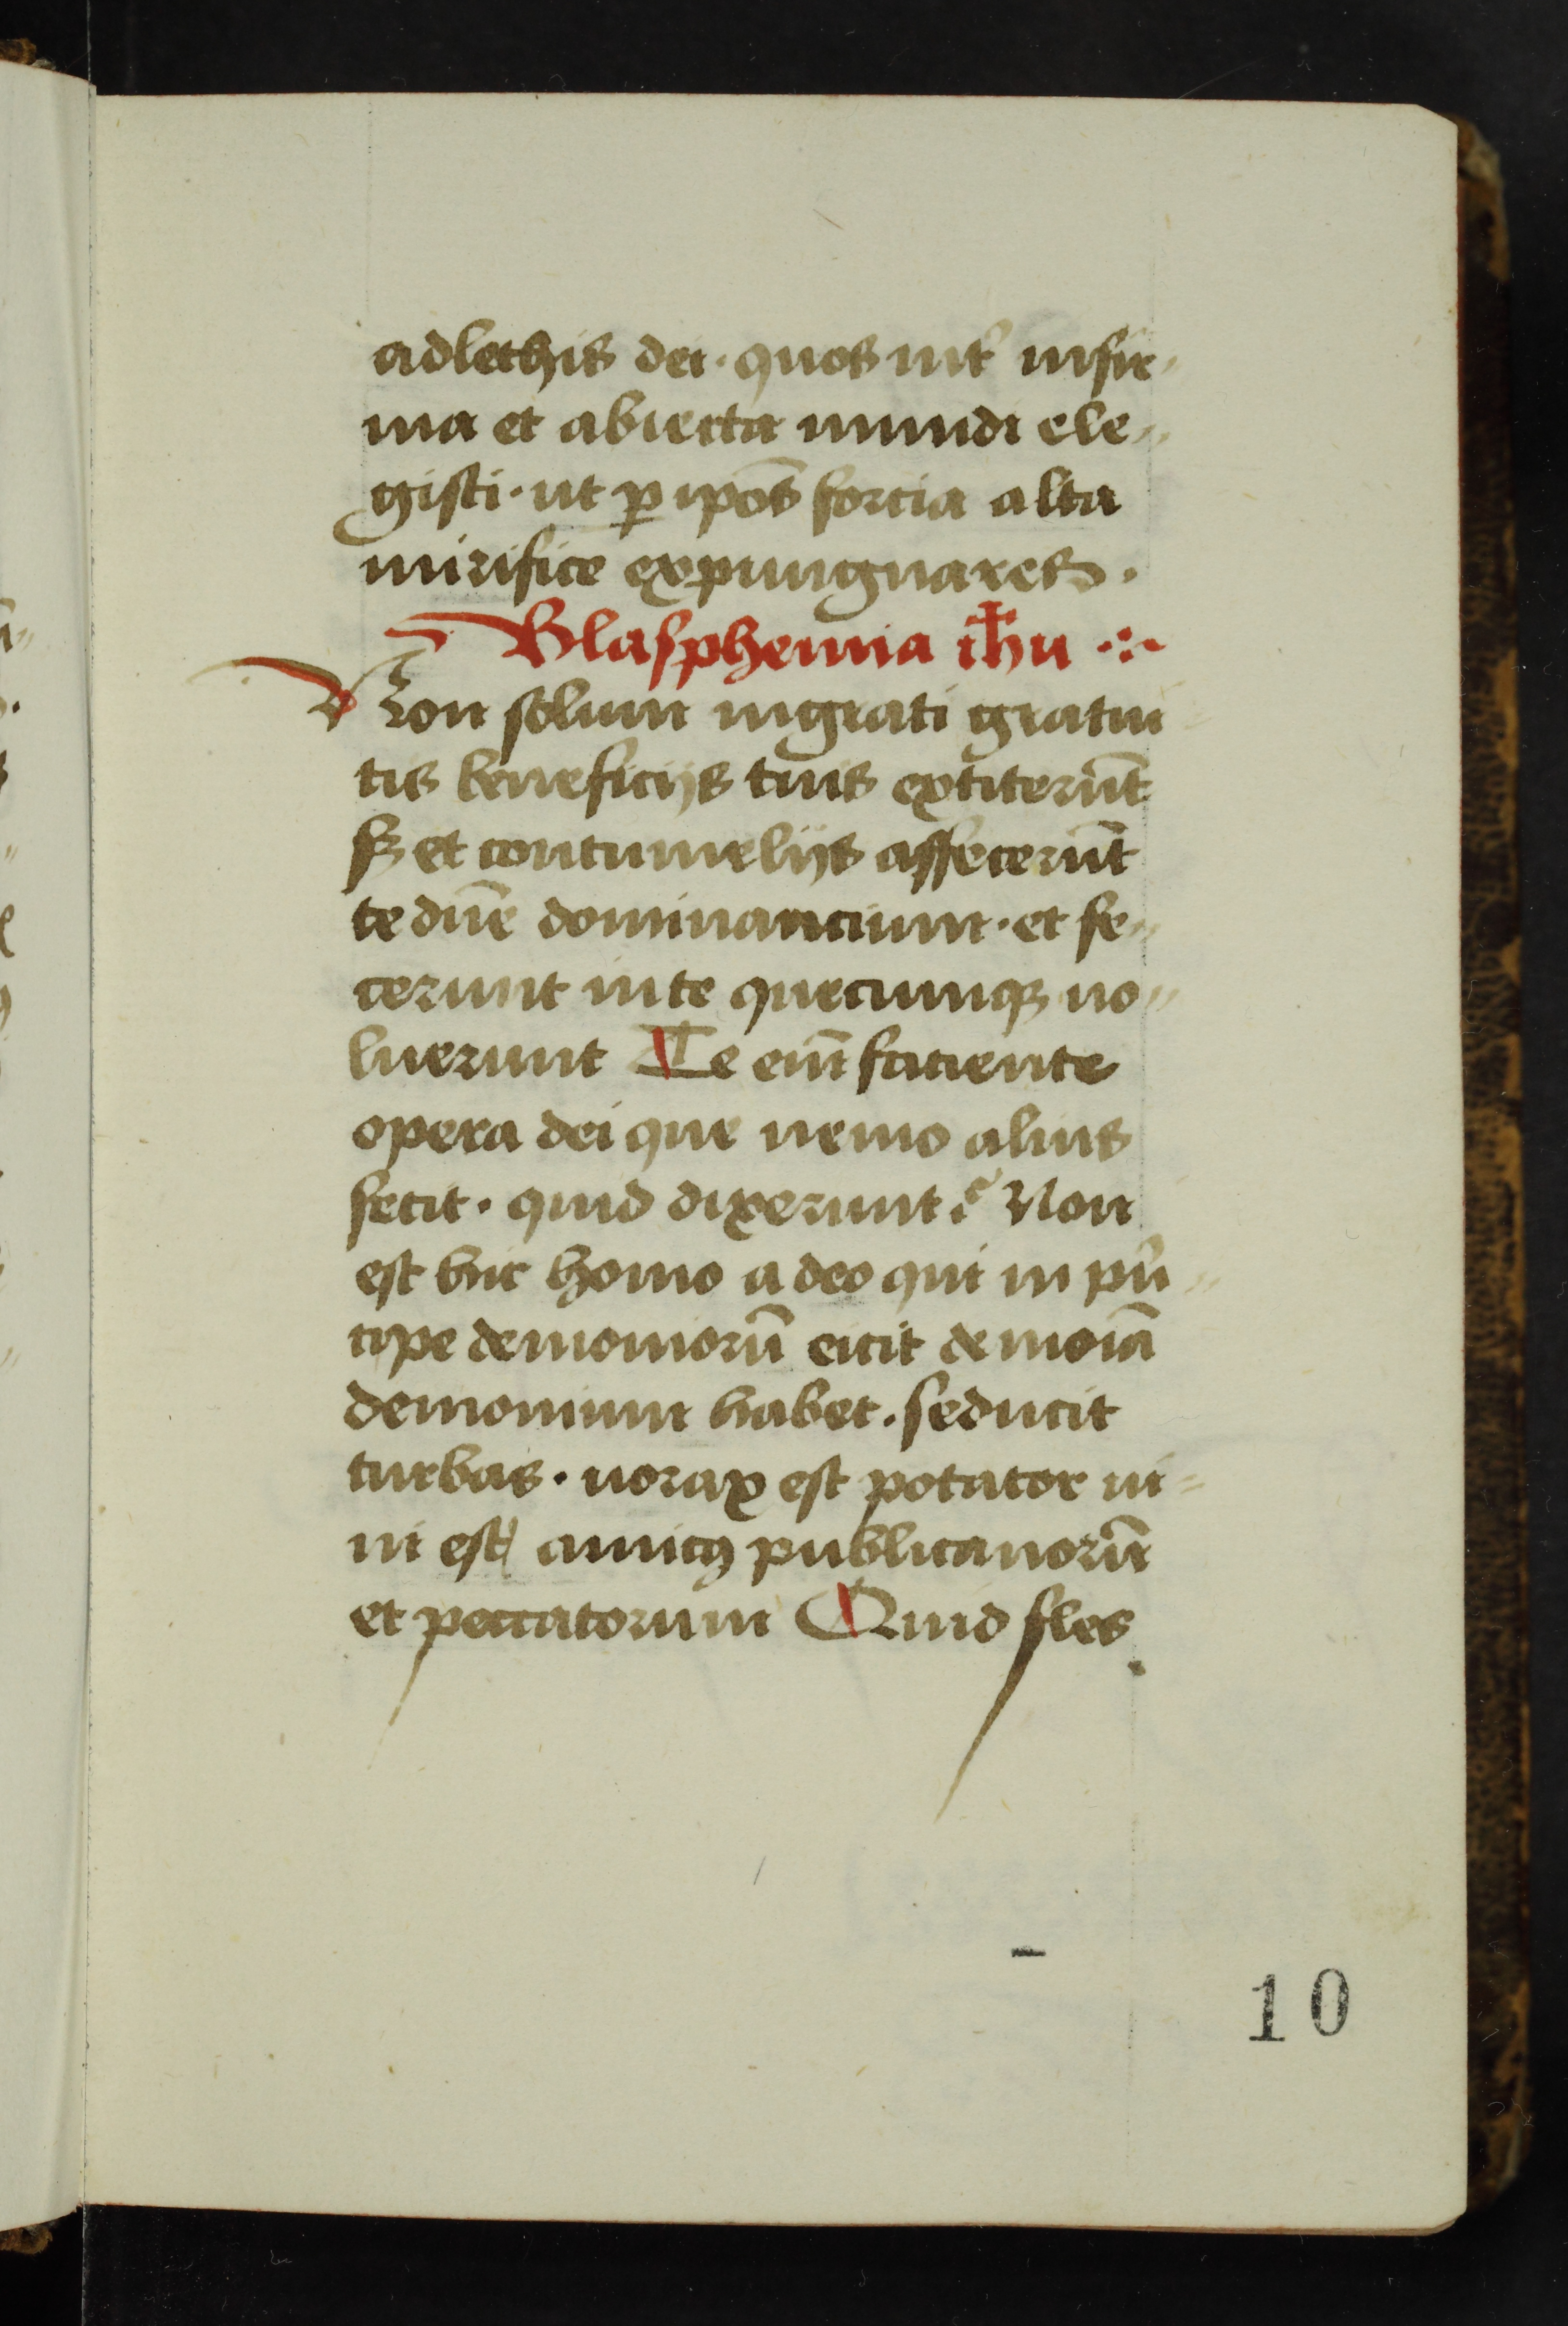 adlethis dei · quos int᷑ infir-
ma et abiecta mundi ele-
gisti · ut ꝑ ip̄os fortia alta
mirifice expungnares ·
Blasphemia ih̄u ·:~
Non solum ingrati gratui
tis beneficijs tuis extiterūt
sꝫ et contumelijs affecerūt
te dn̄e dominancium · et fe-
cerunt in te quecumqꝫ uo-
luerunt Te eni̅ faciente
opera dei que nemo alius
fecit · quid dixerunt ? Non
est hic homo a deo qui in pͥn
cipe demoniorū eicit demoīa
demonium habet . seducit
turbas · uorax est potator ui-
ni est amicꝰ publicanorū
et peccatorum Quid fles
10